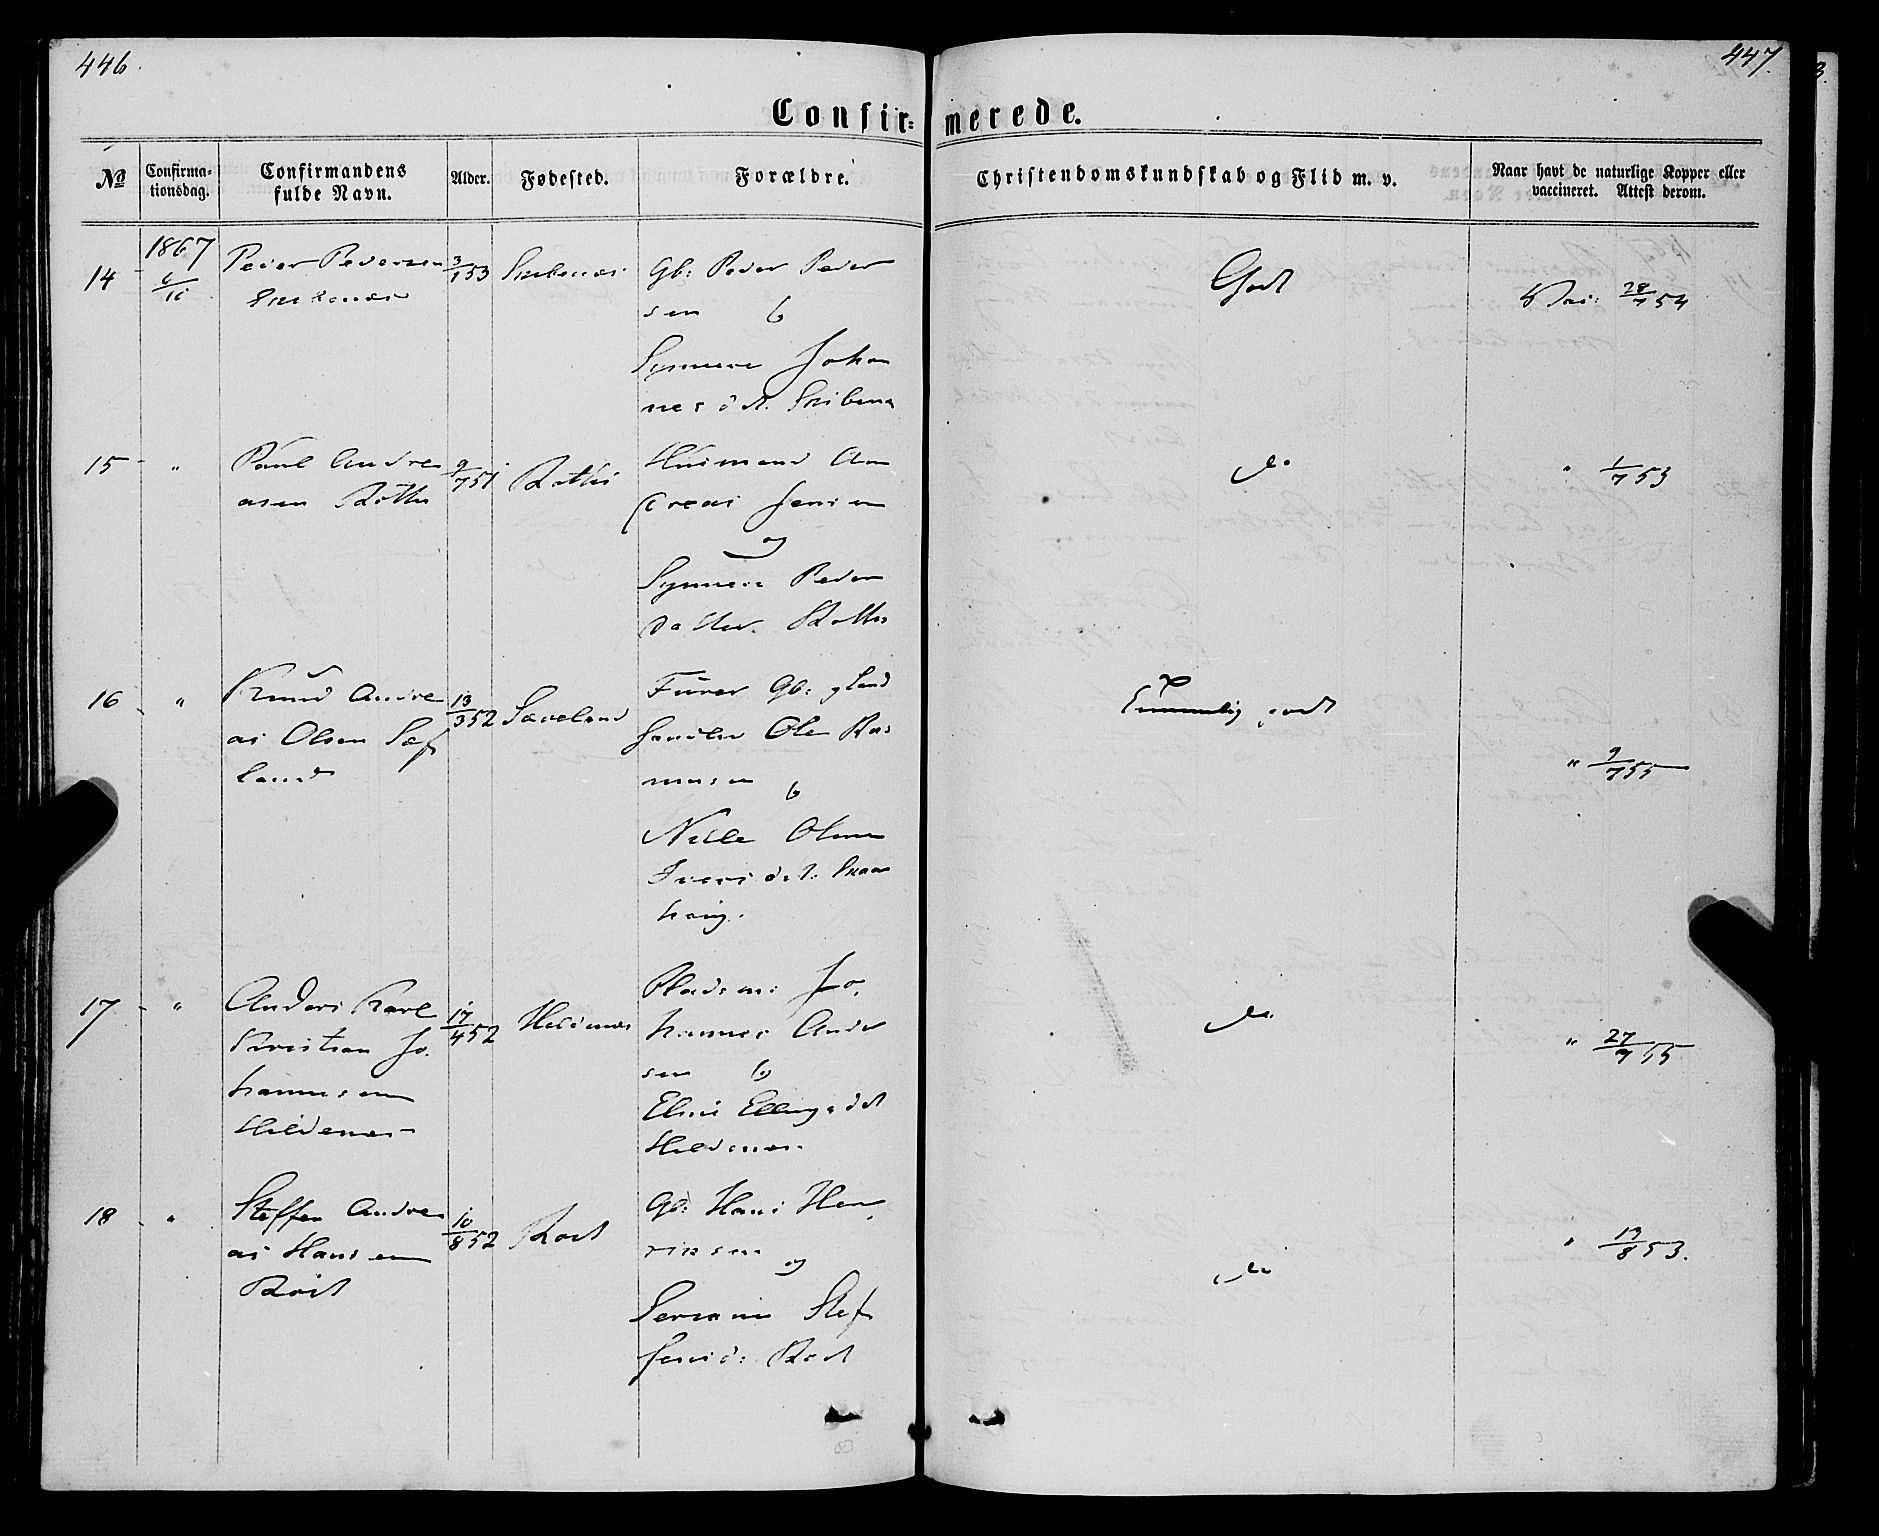 446.
447.
Confir- merede.
No
Confirma-
tionsdag.
Confirmandens
fulde Navn.
Alder.
Fødested.
Forældre.
Christendomskundskab og Flid m. v.
Naar havt de naturlige Kopper eller
vaccineret. Attest derom.
14
1867
6/10
Peder Pedersen
3/1 53
Gb: Peder Peder
sen
Synneve Johan
nesdt.
Godt
Vac: 28/7 54
15 "
Paul Andre
asen Rotthe
9/7 51
Husmand An
dreas Jensen
og
Synneve Peder
datter
do
" 1/7 53
16 "
Knud Andre
as Olsen Sæ
land
13/3 52
Sæveland
Gb: Land
handler Ole Ras
musen
Nille Olene
Iversdat:
Temmelig godt
" 9/7 55
17 "
Anders Karl
Kristian Jo
hannesen
Hildenes
17/4 52
Hildenes
Pladsm: Jo
hannes Anders
sen
Elsie Ellingsdt
Hildenes
do
" 27/9 55
18 "
Steffen Andre
as Hansen
10/8 52
Gb: Hans Hen
riksen
og
Stef
fensd:
do
" 19/8 53.